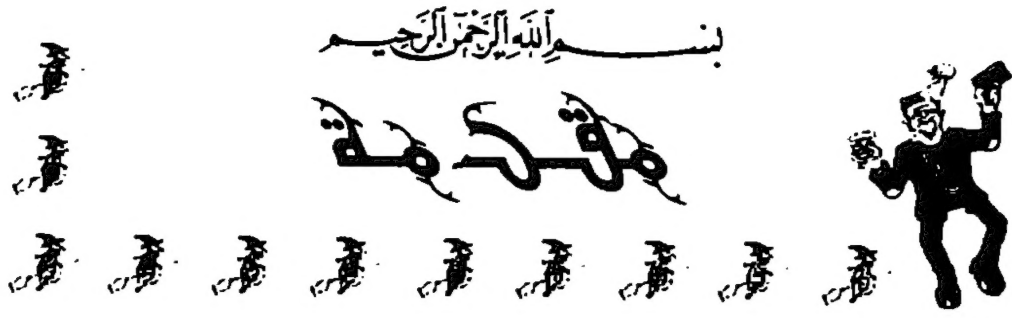 بِسْمِ اللَّهِ الرَّحْمَٰنِ الرَّحِيمِ
مقدمة